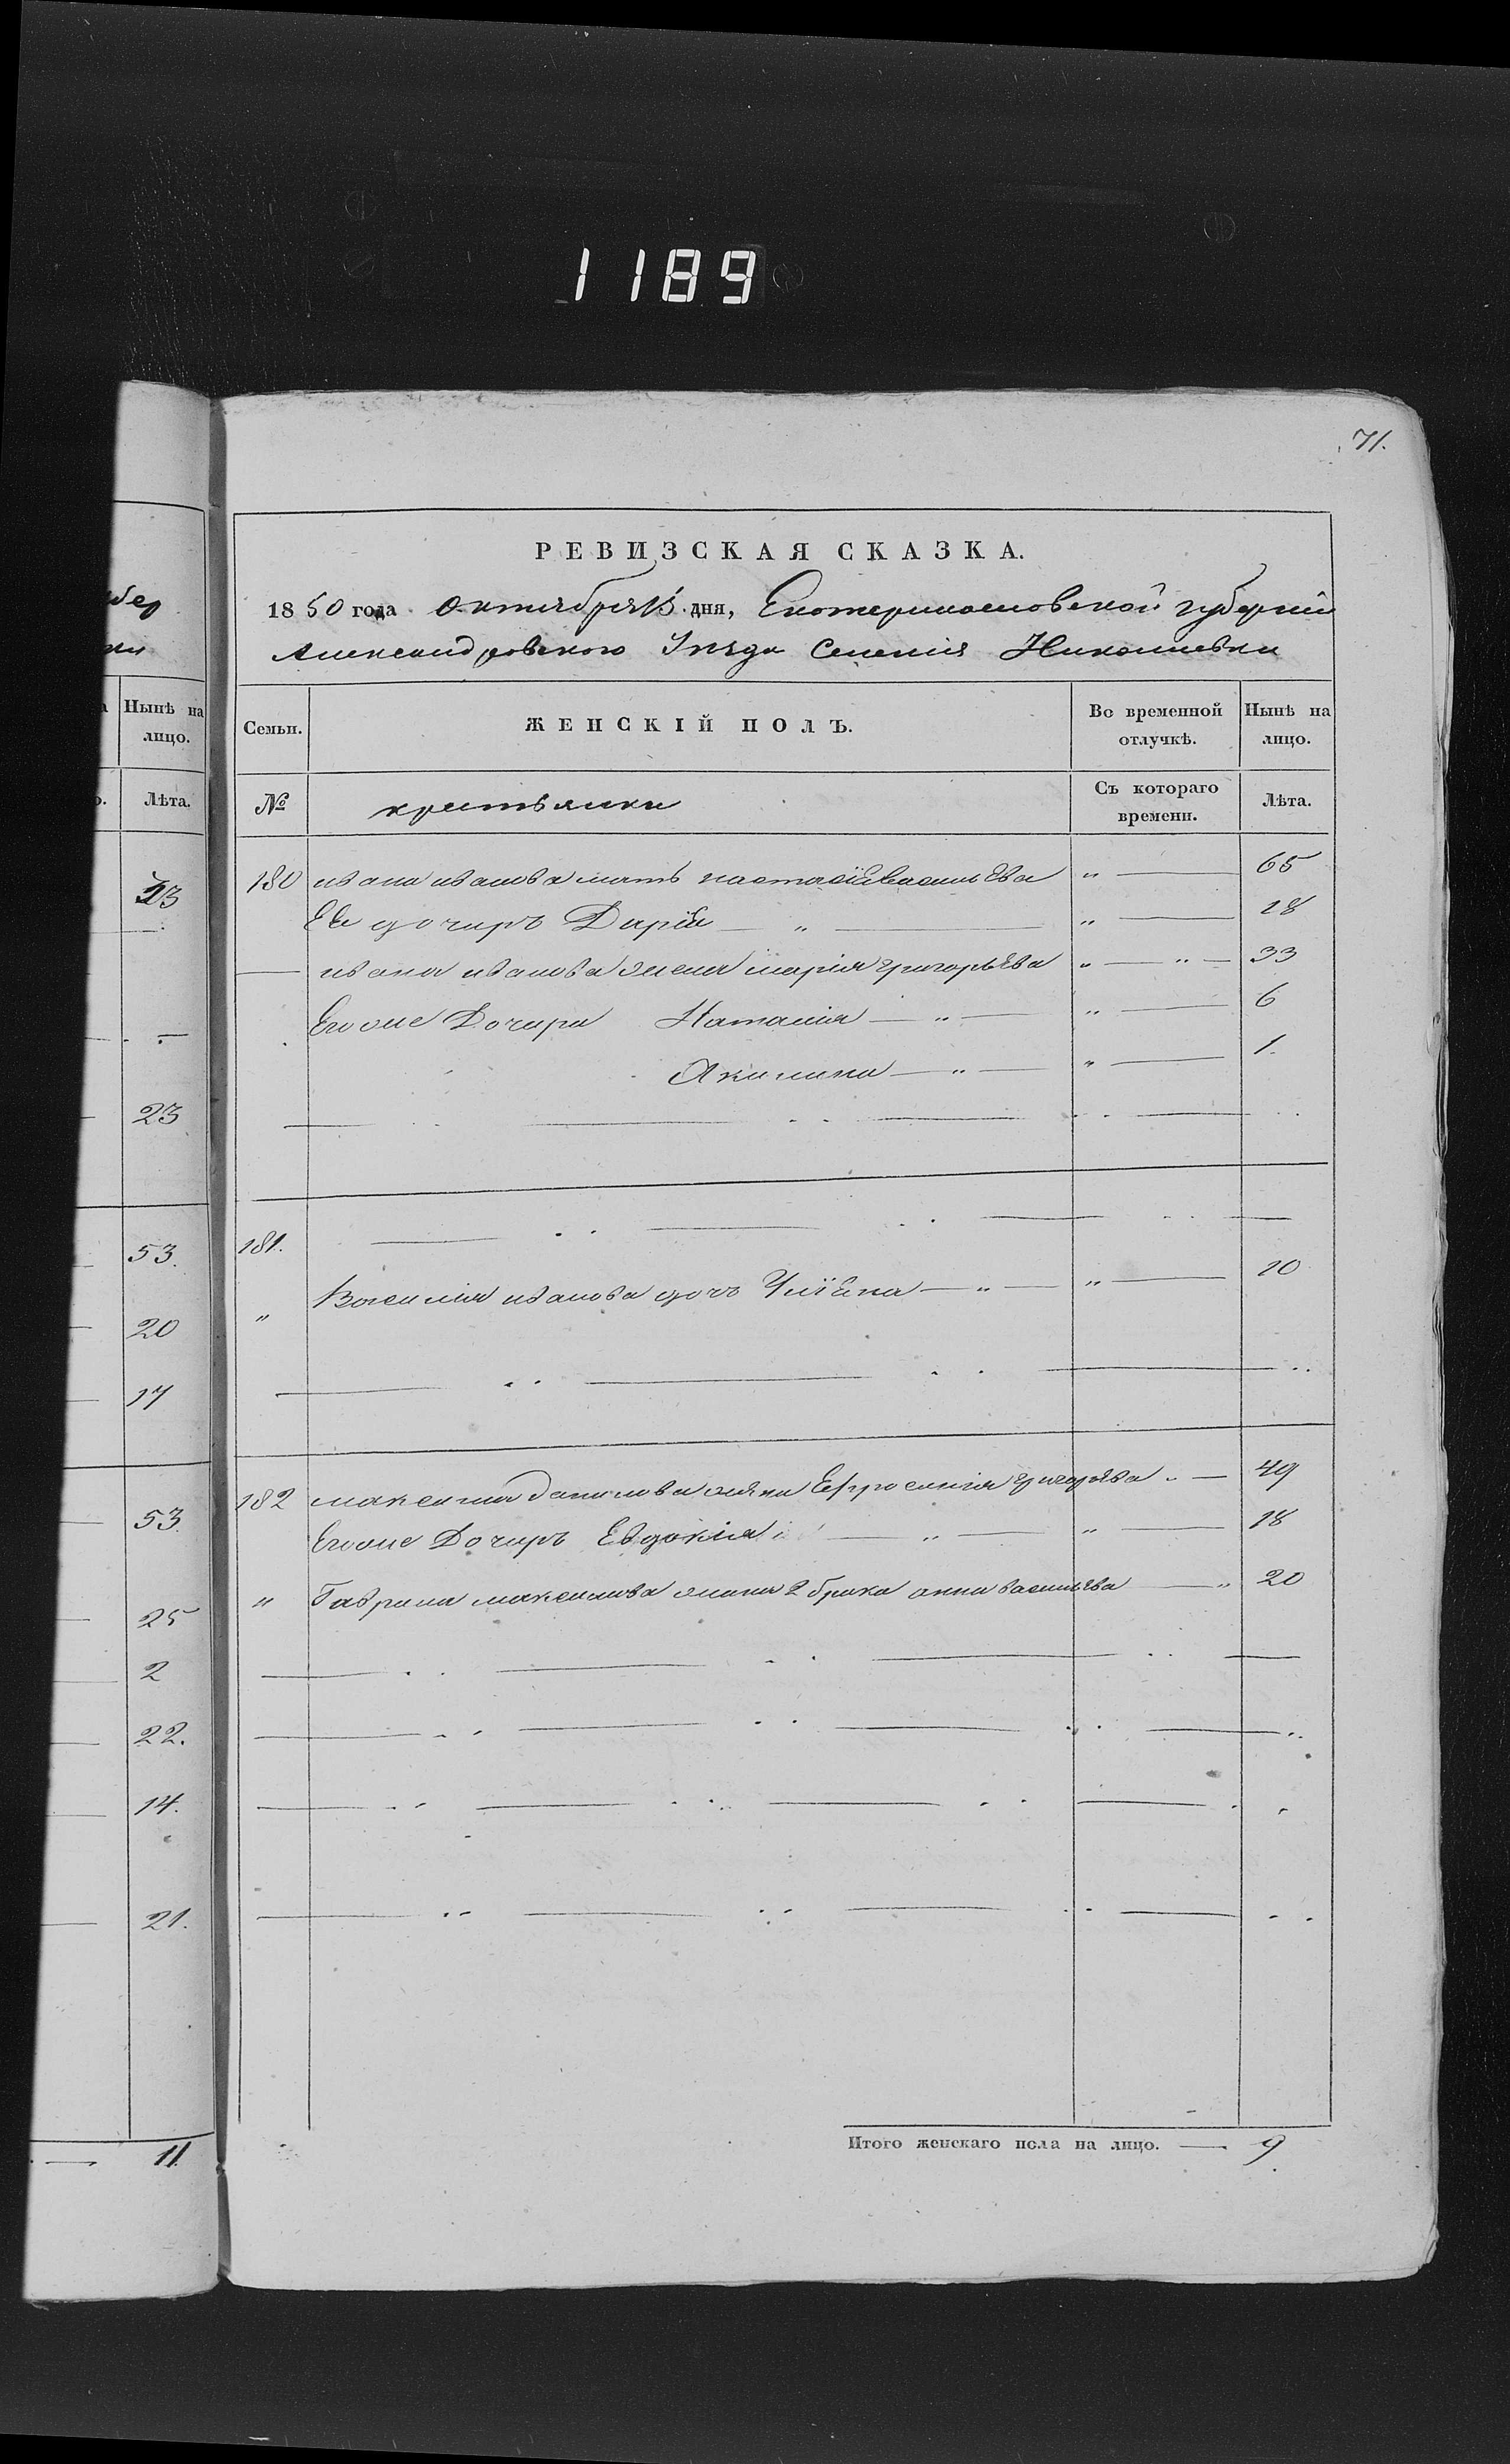 1189
71.
бер
Нынѣ на
лицо.
Лѣта.
23
23
53.
20
17
53
25
2
22.
14.
21.
11
РЕВИЗСКАЯ СКАЗКА.
1850 года Октября 15 дня, Екатеринославской губернии
Александровского Уезда Селения Николаевки
Семьи. ЖЕНСКІЙ ПОЛЪ. Во временной отлучкѣ. Нынѣ на лицо.
№ крестьянки Съ котораго времени. Лѣта.
180 ивана иванова мать настасия васильева " 65
Ее дочиръ Дария " " 18
ивана иванова жена мария григорьева " " 33
Егоже Дочири Наталия " " 6
Акилина " " 1.
181.
" Василия иванова дочь Улияна " " 10
182 максима данилова жена Ефросиния григорьева " 49
Егоже Дочиръ Евдокия " " 18
" Гаврила максимова жина 2 брака анна васильева " 20
Итого женскаго пола на лицо. 9